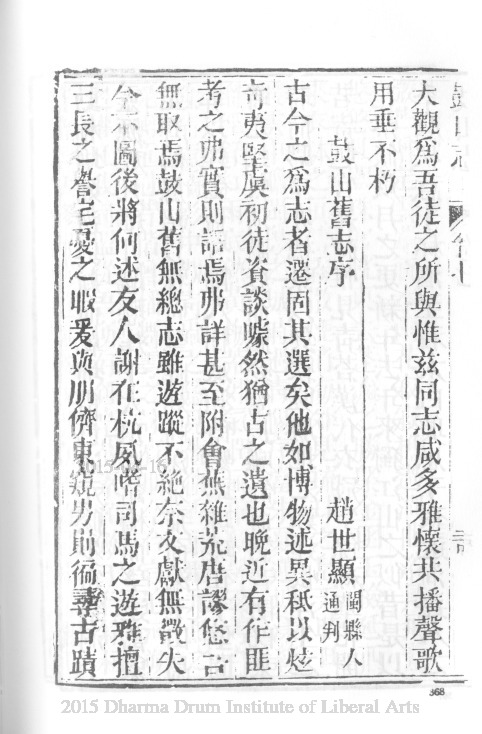 大觀爲吾徒之所與惟兹同志咸多雅懷共播聲歌
用垂不朽
鼓山舊志序
趙世顯 閩縣人 通判
古今之爲志者遷固其選矣他如博物述異秪以炫
奇夷堅虞初徒資談噱然猶古之遺也晚近有作匪
考之弗實則語焉弗詳甚至附會蕪雜荒唐謬悠吾
無取焉鼓山舊無總志雖遊蹤不絶奈文獻無徵失
今不圖後將何述友人謝在杭夙嗜司馬之遊雅擅
三長之譽宅憂之暇爰與朋儕東
則徧尋古蹟
368
2015 Dharma Drum Institute of Liberal Arts